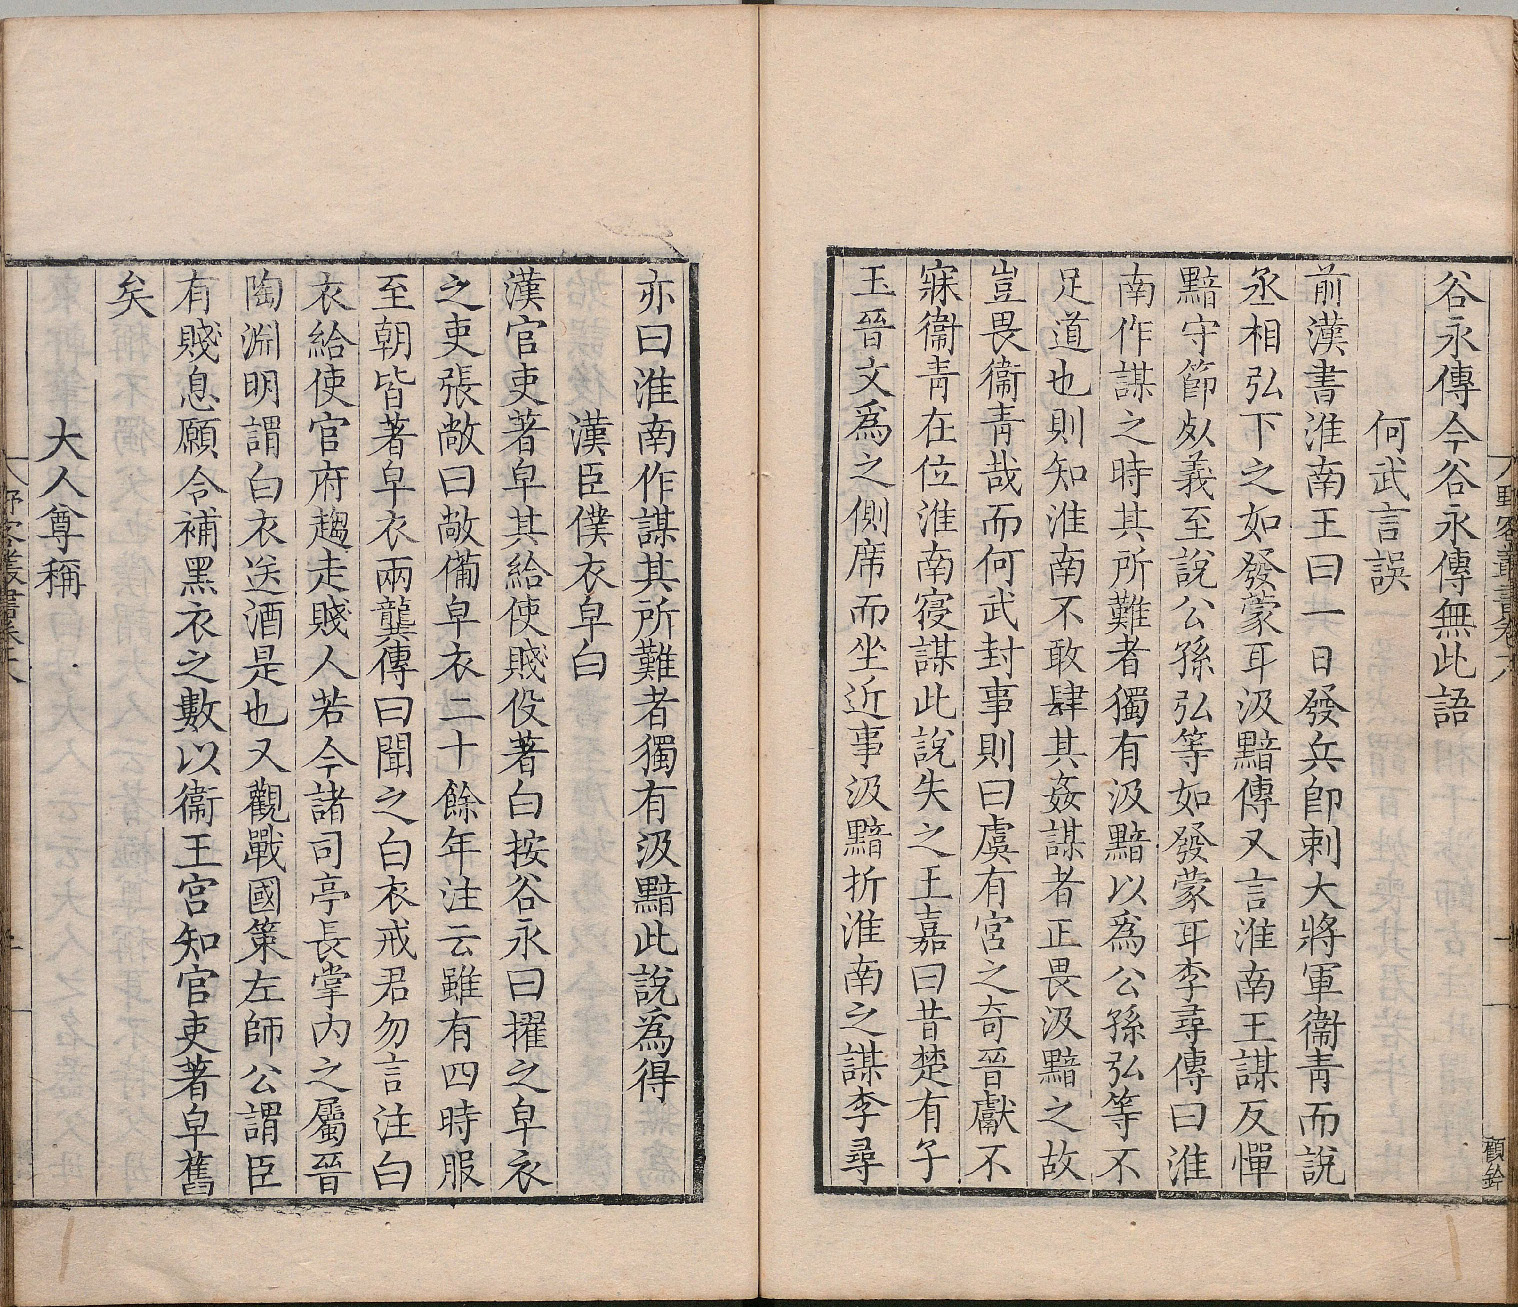 谷永傳今谷永傳無此語
何武言誤
前漢書淮南王曰一日發兵卽刺大將軍衞青而說
丞相弘下之如發蒙耳汲黯傳又言淮南王謀反憚
黯守節死義至說公孫弘等如發蒙耳李尋傳曰淮
南作謀之時其所難者獨有汲黯以爲公孫弘等不
足道也則知淮南不敢肆其姦謀者正畏汲黯之故
豈畏衞青哉而何武封事則曰虞有宮之奇晉獻不
寐衞青在位淮南寑謀此說失之王嘉曰昔楚有子
玉晉文爲之側席而坐近事汲黯折淮南之謀李尋
亦曰淮南作謀其所難者獨有汲黯此說爲得
漢臣僕衣皁白
漢官吏著皁其給使賤役著白按谷永曰擢之皁衣
之吏張敞曰敞備皁衣二十餘年注云雖有四時服
至朝皆著皁衣兩龔傳曰聞之白衣戒君勿言注白
衣給使官府趨走賤人若今諸司亭長掌內之屬晉
陶淵明謂白衣送酒是也又觀戰國策左師公謂臣
有賤息願令補黑衣之數以衞王宮知官吏著皁舊
矣
大人尊稱
野客叢書卷十八
顧鈴